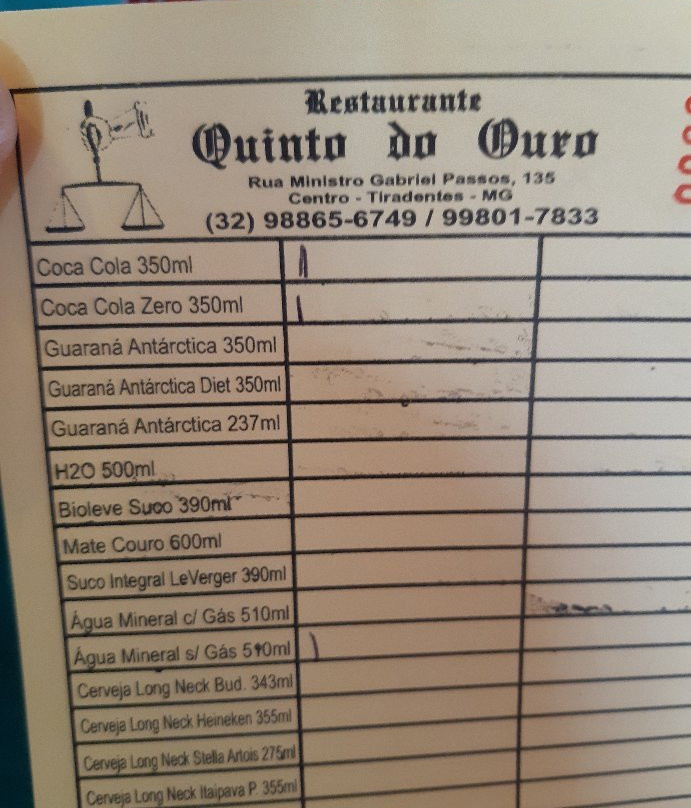 Restaurante
Quinto do Ouro
Rua Ministro Gabriel Passos, 135
Centro - Tiradentes - MG
(32) 98865-6749 / 99801-7833
Coca Cola 350ml
Coca Cola Zero 350ml
Guaraná Antárctica 350ml
Guaraná Antárctica Diet 350ml
Guaraná Antárctica 237ml
H2O 500ml
Bioleve Suco 390ml
Mate Couro 600ml
Suco Integral LeVerger 390ml
Água Mineral c/ Gás 510ml
Água Mineral s/ Gás 510ml
Cerveja Long Neck Bud. 343ml
Cerveja Long Neck Heineken 355ml
Cerveja Long Neck Stella Artois 275ml
Cerveja Long Neck Itaipava P. 355ml